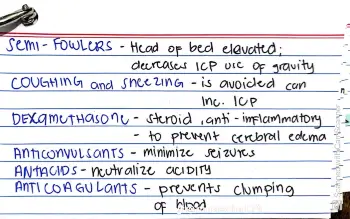 SEMI-FOWLERS - Head of bed elevated;
decreases ICP b/c of gravity
COUGHING and SNEEZING - is avoided can
Inc. ICP
DEXAMETHASONE - steroid, anti-inflammatory
- to prevent cerebral edema
ANTICONVULSANTS - minimize seizures
ANTACIDS - neutralize acidity
ANTICOAGULANTS - prevents clumping
of blood